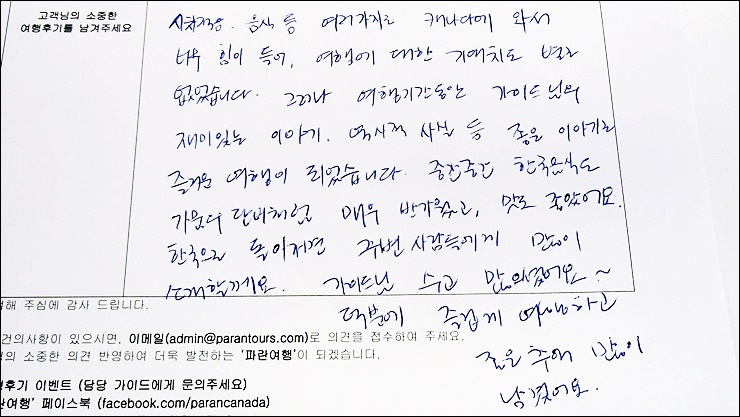 고객님의 소중한
여행후기를 남겨주세요
시차적응. 음식 등 여러가지로 캐나다에 와서
너무 힘이 들어, 여행에 대한 기대치도 별로
없었습니다. 그러나 여행기간동안 가이드님의
재미있는 이야기. 역사적 사실 등 좋은 이야기로
즐거운 여행이 되었습니다. 중간중간 한국음식도
가뭄의 단비처럼 매우 반가웠고, 맛도 좋았어요.
한국으로 돌아가면 주변 사람들에게 많이
소개할께요. 가이드님 수고 많으셨어요~
덕분에 즐겁게 여행하고
좋은 추억 많이
남겼어요.
해 주심에 감사 드립니다.
건의사항이 있으시면, 이메일(admin@parantours.com)로 의견을 접수하여 주세요.
의 소중한 의견 반영하여 더욱 발전하는 '파란여행'이 되겠습니다.
후기 이벤트 (담당 가이드에게 문의주세요)
란여행' 페이스북 (facebook.com/parancanada)